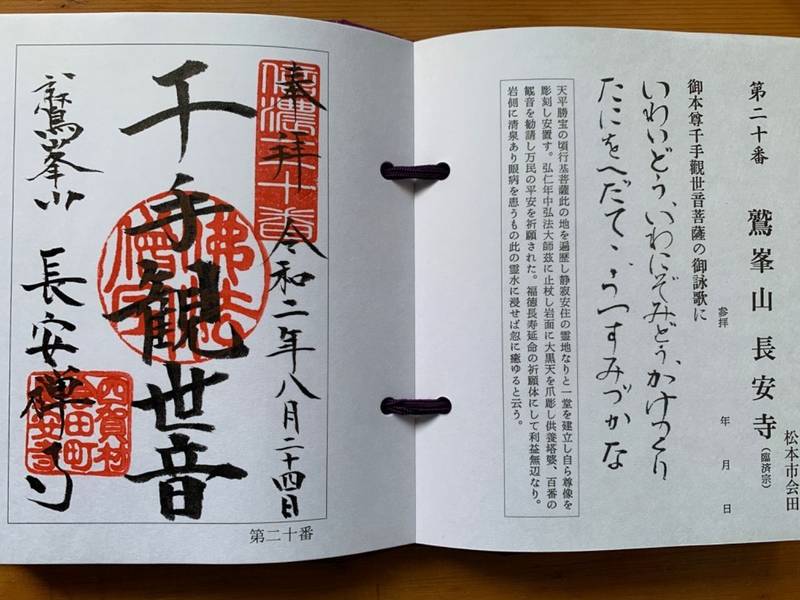 松本市会田
第二十番　鷲峯山 長安寺（臨済宗）
参拝　年　月　日
御本尊千手觀世音菩薩の御詠歌に
いわいどう、いわにぞみどう、かけつくり
たにをへだて
すみづかな
天平勝宝の頃行基菩薩此の地を遍歴し静寂安住の霊地なりと一堂を建立し自ら尊像を
彫刻し安置す。弘仁年中弘法大師茲に止杖し岩面に大黒天を爪彫し供養塔婆、百番の
観音を勧請し万民の平安を祈願された。福徳長寿延命の祈願体にして利益無辺なり。
岩側に清泉あり眼病を患うもの此の霊水に浸せば忽に癒ゆると云う。
奉拝　令和二年八月二十四日
千手観世音
鷲峯山　長安禅寺
四賀村
会田町
長安寺
第二十番